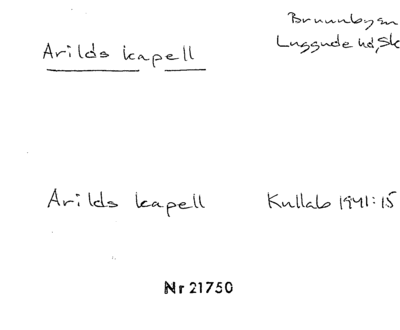 Brunnbyn
Arilds kapell
Luggude hd, Sk
Arilds kapell Kullab 1941:15
Nr 21750